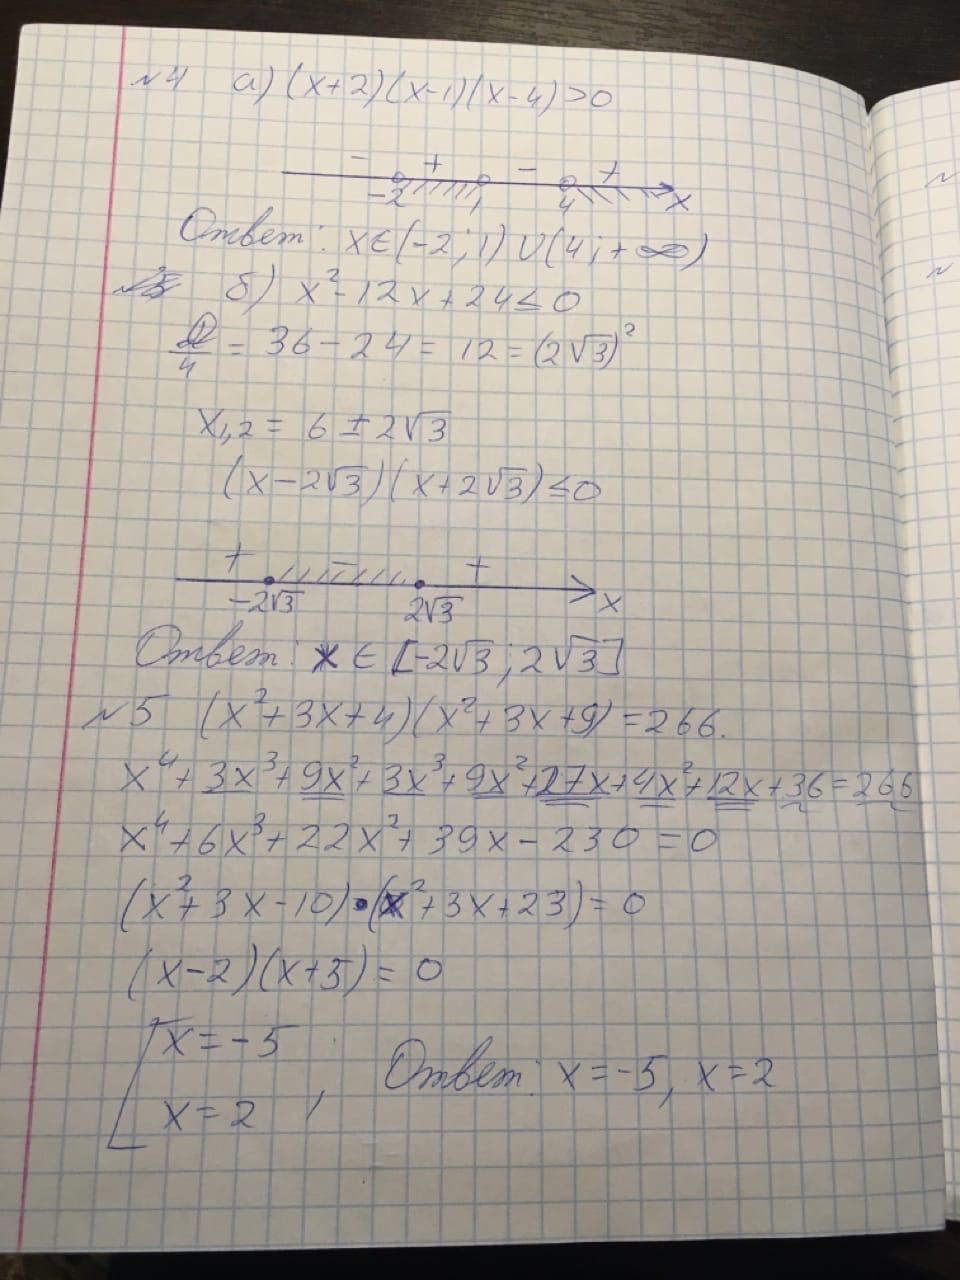 №4 а) (x+2)(x-1)(x-4)>0
- + - +
-2 1 4 x
Ответ: x∈(-2;1)∪(4;+∞)
б) x²-12x+24≤0
D/4 = 36-24 = 12 = (2√3)²
x₁,₂ = 6 ± 2√3
(x-2√3)(x+2√3)≤0
+ - +
-2√3 2√3 x
Ответ: x ∈ [-2√3; 2√3]
№5 (x²+3x+4)(x²+3x+9)=266.
x⁴+3x³+9x²+3x³+9x²+27x+4x²+12x+36=266
x⁴+6x³+22x²+39x-230=0
(x²+3x-10)•(x²+3x+23)=0
(x-2)(x+5)=0
[x=-5
x=2 , Ответ: x=-5, x=2